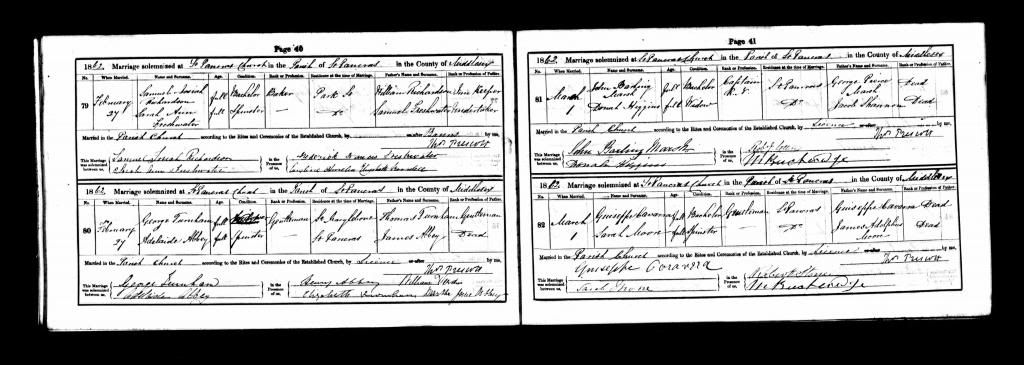 Page 40
1862. Marriage solemnized at St Pancras Church in the Parish of St Pancras in the County of Middlesex
No. When Married. Name and Surname. Age. Condition. Rank or Profession. Residence at the time of Marriage. Father's Name and Surname. Rank or Profession of Father.
79 February 27 Samuel Josiah Richardson full Bachelor Baker Park St William Richardson Inn Keeper
Sarah Ann Freshwater full Spinster — Do Samuel Freshwater Undertaker
Married in the Parish Church according to the Rites and Ceremonies of the Established Church, by or after Banns by me,
Thos Prescott
This Marriage was solemnized between us, Samuel Josiah Richardson
Sarah Ann Freshwater
in the Presence of us, Frederick Freshwater
Caroline
1862. Marriage solemnized at St Pancras Church in the Parish of St Pancras in the County of Middlesex
No. When Married. Name and Surname. Age. Condition. Rank or Profession. Residence at the time of Marriage. Father's Name and Surname. Rank or Profession of Father.
80 February 27 George Farnham full Gentleman St Marylebone Thomas Farnham Gentleman
Adelaide Abbey full Spinster — St Pancras James Abbey Dead
Married in the Parish Church according to the Rites and Ceremonies of the Established Church, by Licence or after by me,
Thos Prescott
This Marriage was solemnized between us, George Farnham
Adelaide Abbey
in the Presence of us, Henry Abbey William
Elizabeth Farnham Martha Jane Abbey
Page 41
1862. Marriage solemnized at St Pancras Church in the Parish of St Pancras in the County of Middlesex
No. When Married. Name and Surname. Age. Condition. Rank or Profession. Residence at the time of Marriage. Father's Name and Surname. Rank or Profession of Father.
81 March 1 John Marsh full Bachelor Captain St Pancras George Marsh Dead
Higgins full Widow — Do Jacob Shannon Dead
Married in the Parish Church according to the Rites and Ceremonies of the Established Church, by Licence or after by me,
Thos Prescott
This Marriage was solemnized between us, John Marsh
Higgins
in the Presence of us,
1862. Marriage solemnized at St Pancras Church in the Parish of St Pancras in the County of Middlesex
No. When Married. Name and Surname. Age. Condition. Rank or Profession. Residence at the time of Marriage. Father's Name and Surname. Rank or Profession of Father.
82 March 1 Giuseppe full Bachelor Gentleman St Pancras Giuseppe Dead
Sarah Moore full Spinster — Do James Adolphus Moore Dead
Married in the Parish Church according to the Rites and Ceremonies of the Established Church, by Licence or after by me,
Thos Prescott
This Marriage was solemnized between us, Giuseppe
Sarah Moore
in the Presence of us,